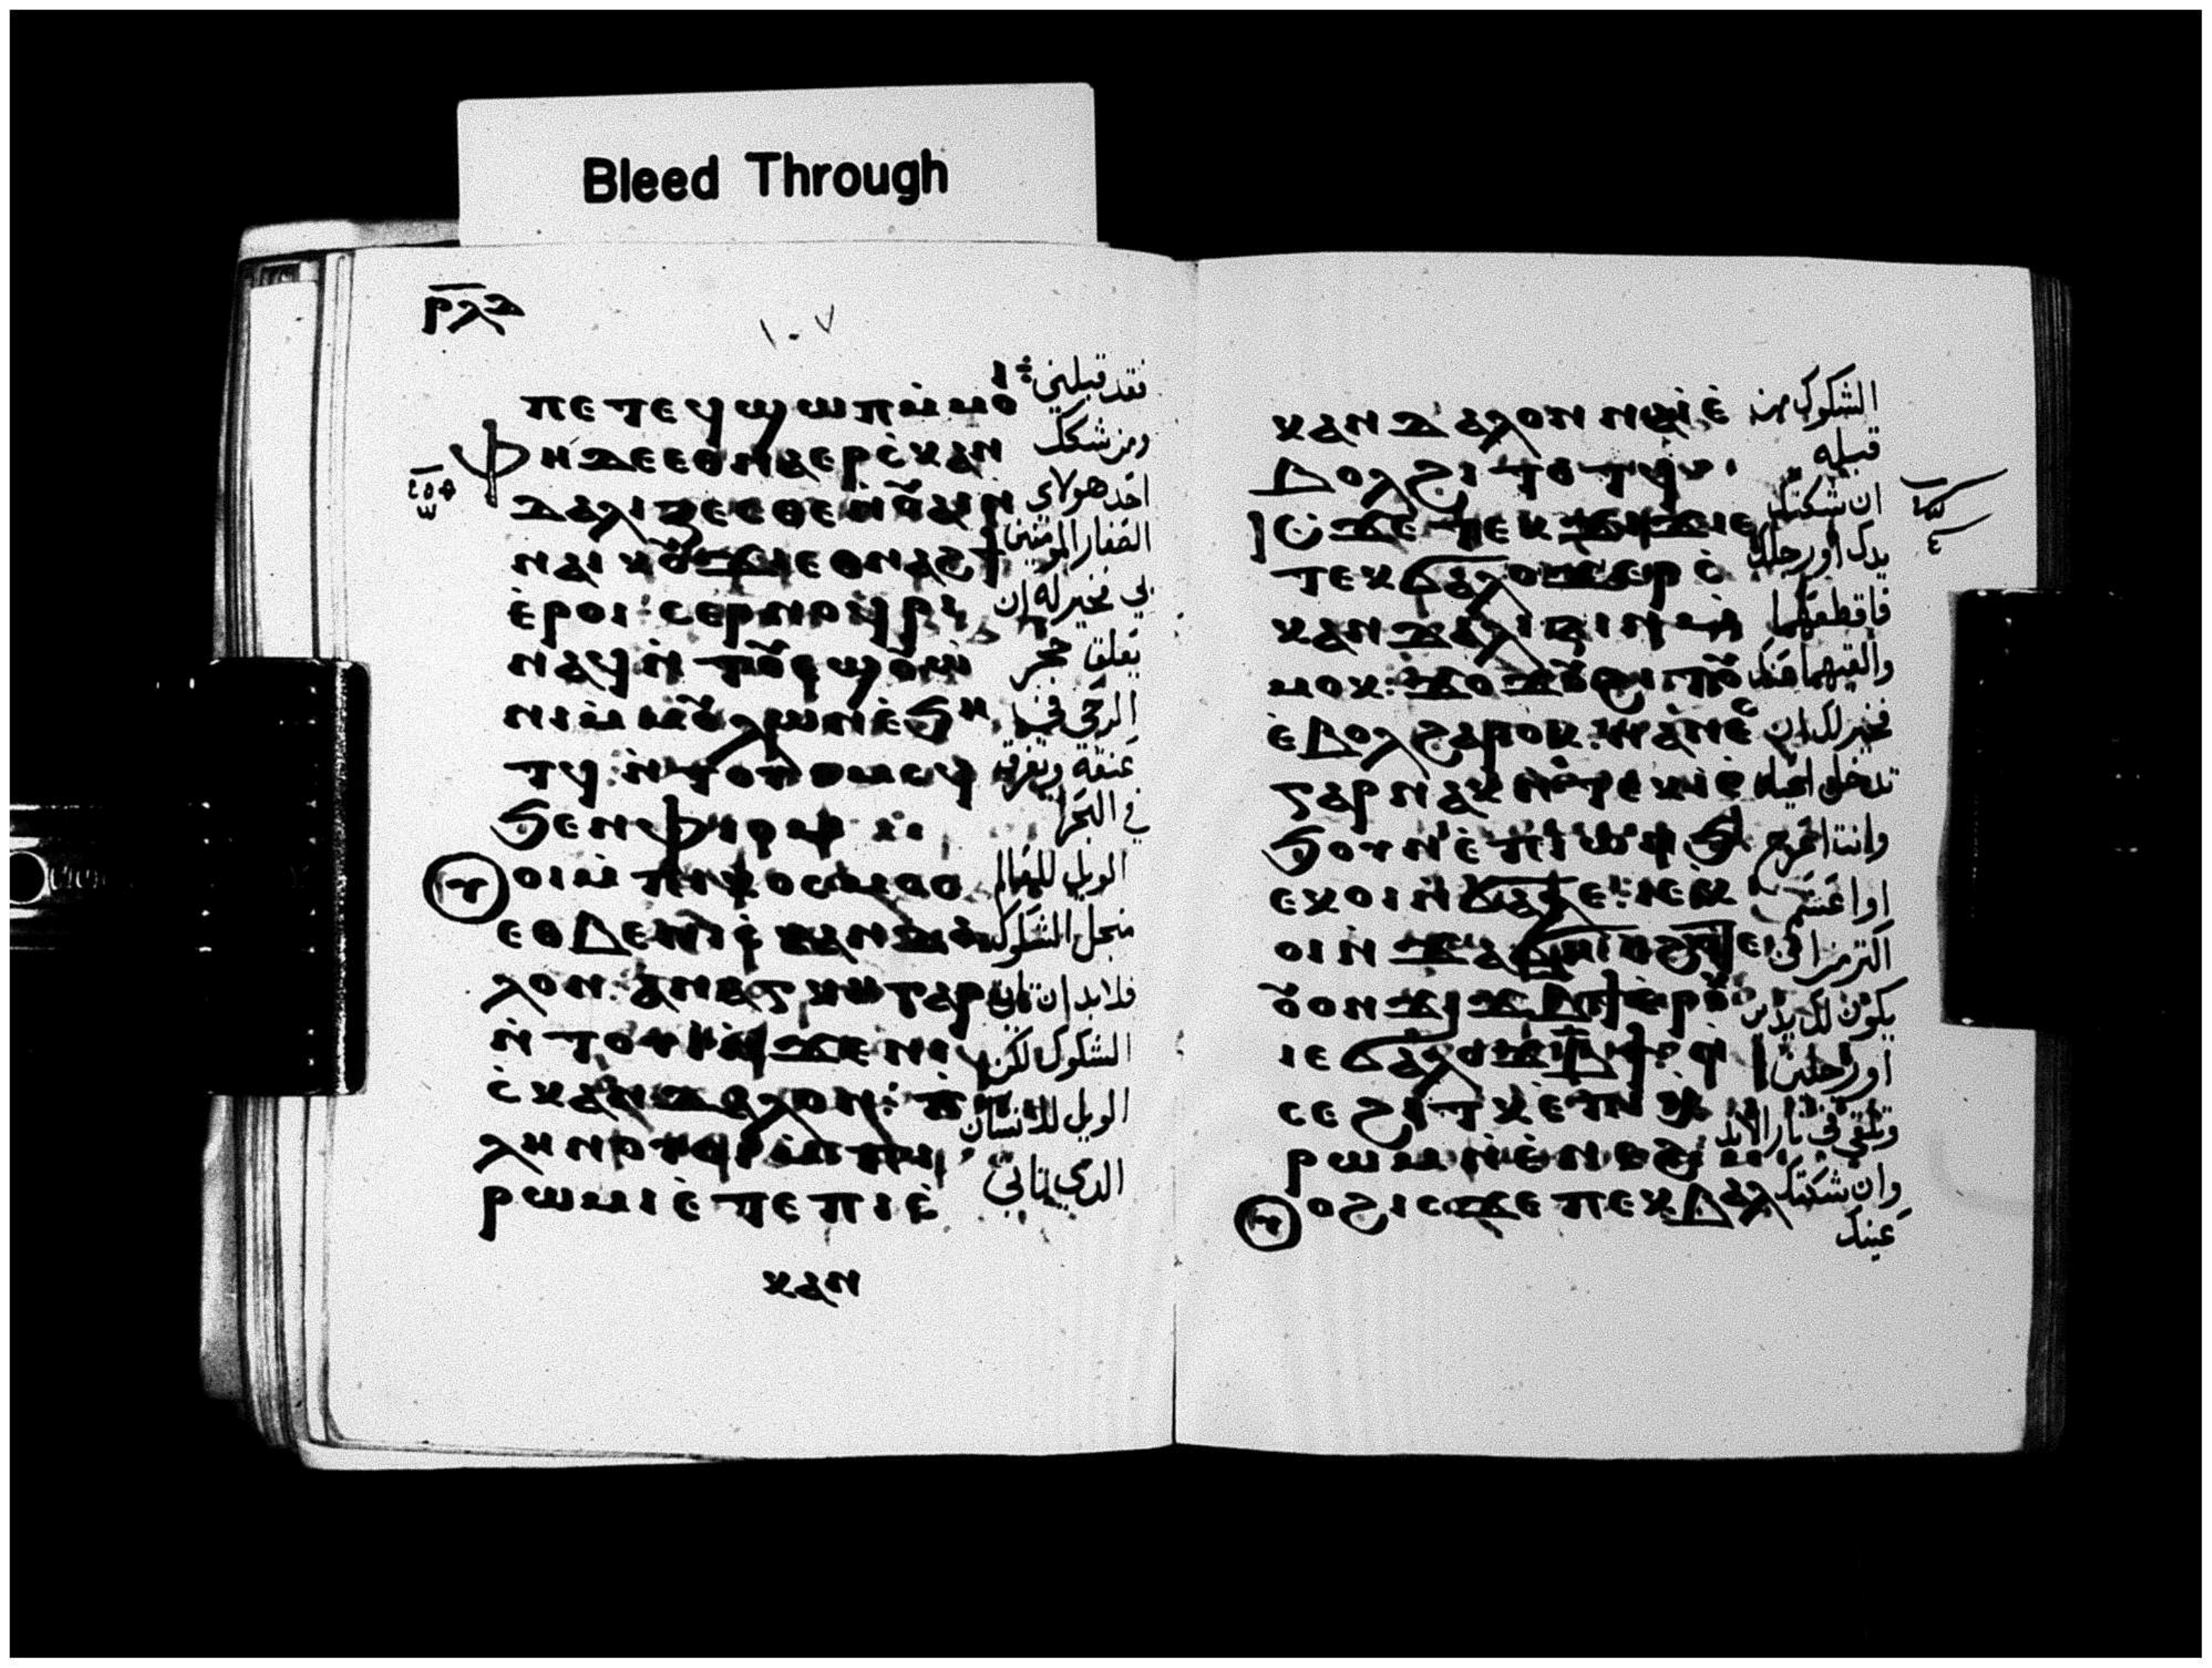 Bleed Through
ⲣⲗⲇ
١٠٧
ⲡⲉⲧⲉϥϣⲱⲡ ⲙ̀ⲙⲟ
فقد قبلني
ⲫⲏ ⲇⲉ ⲉⲑⲛⲁⲉⲣⲥ̀ⲕⲁⲛ
ومن شكك
ⲇⲁⲗⲓⲍⲉⲥⲑⲉ ⲛ̀ⲟⲩⲁⲓ ⲛ̀
احد هولاى
ⲛⲁⲓⲕⲟⲩϫⲓ ⲉⲑⲛⲁϩϯ
الصغار المومنين
ⲉ̀ⲣⲟⲓ ⲥⲉⲣⲛⲟϥⲣⲓ
لى فخير له ان
ⲛⲁϥ ⲛ̀ⲧⲟⲩⲉϣ ⲟⲩⲱ̀
يعلق حجر
ⲛⲓ ⲙ̀ⲙⲟⲩⲗⲱⲛ ⲉ̀ϧⲏ
الرحى في
ⲧϥ ⲛ̀ⲧⲟⲩⲟⲙⲥϥ
عنقه ويغرق
ϧⲉⲛ ⲫⲓⲟⲙ
في البحر
ⲟⲩⲟⲓ ⲙ̀ⲡⲓⲕⲟⲥⲙⲟⲥ
الويل للعالم
ⲉⲑⲃⲉ ⲛⲓⲥ̀ⲕⲁⲛⲇⲁ
منجل الشكوك
ⲗⲟⲛ ⲁⲛⲁⲅⲕⲏ ⲅⲁⲣ
فلابد ان تاتى
ⲛ̀ⲧⲟⲩⲓ̀ ⲛ̀ϫⲉ ⲛⲓ
الشكوك لكن
ⲥ̀ⲕⲁⲛⲇⲁⲗⲟⲛ ⲡ̀
الويل للانسان
ⲗⲏⲛ ⲟⲩⲟⲓ ⲙ̀ⲡⲓ
الذي ياتى
ⲣⲱⲙⲓ ⲉ̀ⲧⲉ ⲡⲓⲥ̀
ⲕⲁⲛ
ⲕⲁⲛⲇⲁⲗⲟⲛ ⲛⲁⲓ̀ ⲉ̀
الشكوك من
ⲃⲟⲗϩⲓⲧⲟⲧϥ
قبله
ⲓⲥϫⲉ ⲧⲉⲕϫⲓϫ ⲓⲉ
ان شككتك
ⲧⲉⲕϭⲁⲗⲟϫ ⲉⲣⲥ̀
يدك او رجلك
ⲕⲁⲛⲇⲁⲗⲓⲍⲓⲛ ⲙ̀
فاقطعهما
ⲙⲟⲕ ϫⲟϫⲟⲩ ϩⲓⲧⲟⲩ
والقيهما عنك
ⲉ̀ⲃⲟⲗϩⲁⲣⲟⲕ ⲛⲁⲛⲉⲥ
فخير لك ان
ⲅⲁⲣ ⲛⲁⲕ ⲛ̀ⲧⲉⲕⲓ̀ ⲉ̀
تدخل الحياه
ϧⲟⲩⲛ ⲉ̀ⲡⲓⲱⲛϧ
وانت اعرج
ⲉⲕⲟⲓ ⲛ̀ϭⲁϭⲉ ⲓⲉ ⲉⲕ
او اعسم
ⲟⲓ ⲛ̀ϭⲁⲗⲉ
اكثر من ان
ⲟⲩⲟⲛ ϫⲓϫ ⲃ̅ϯ ⲉ̀ⲣⲟⲕ
يكون لك يدين
ⲓⲉ ϭⲁⲗⲟϫ ⲃ̅ϯ
او رجلين
ⲥⲉϩⲓⲧⲕ ⲉ̀ⲡⲓⲭ̀
وتلقى في نار الابد
ⲣⲱⲙ ⲛ̀ⲉ̀ⲛⲉϩ
وان شككتك
ⲟⲩⲟϩ ⲓⲥϫⲉ ⲡⲉⲕⲃⲁⲗ
عينك